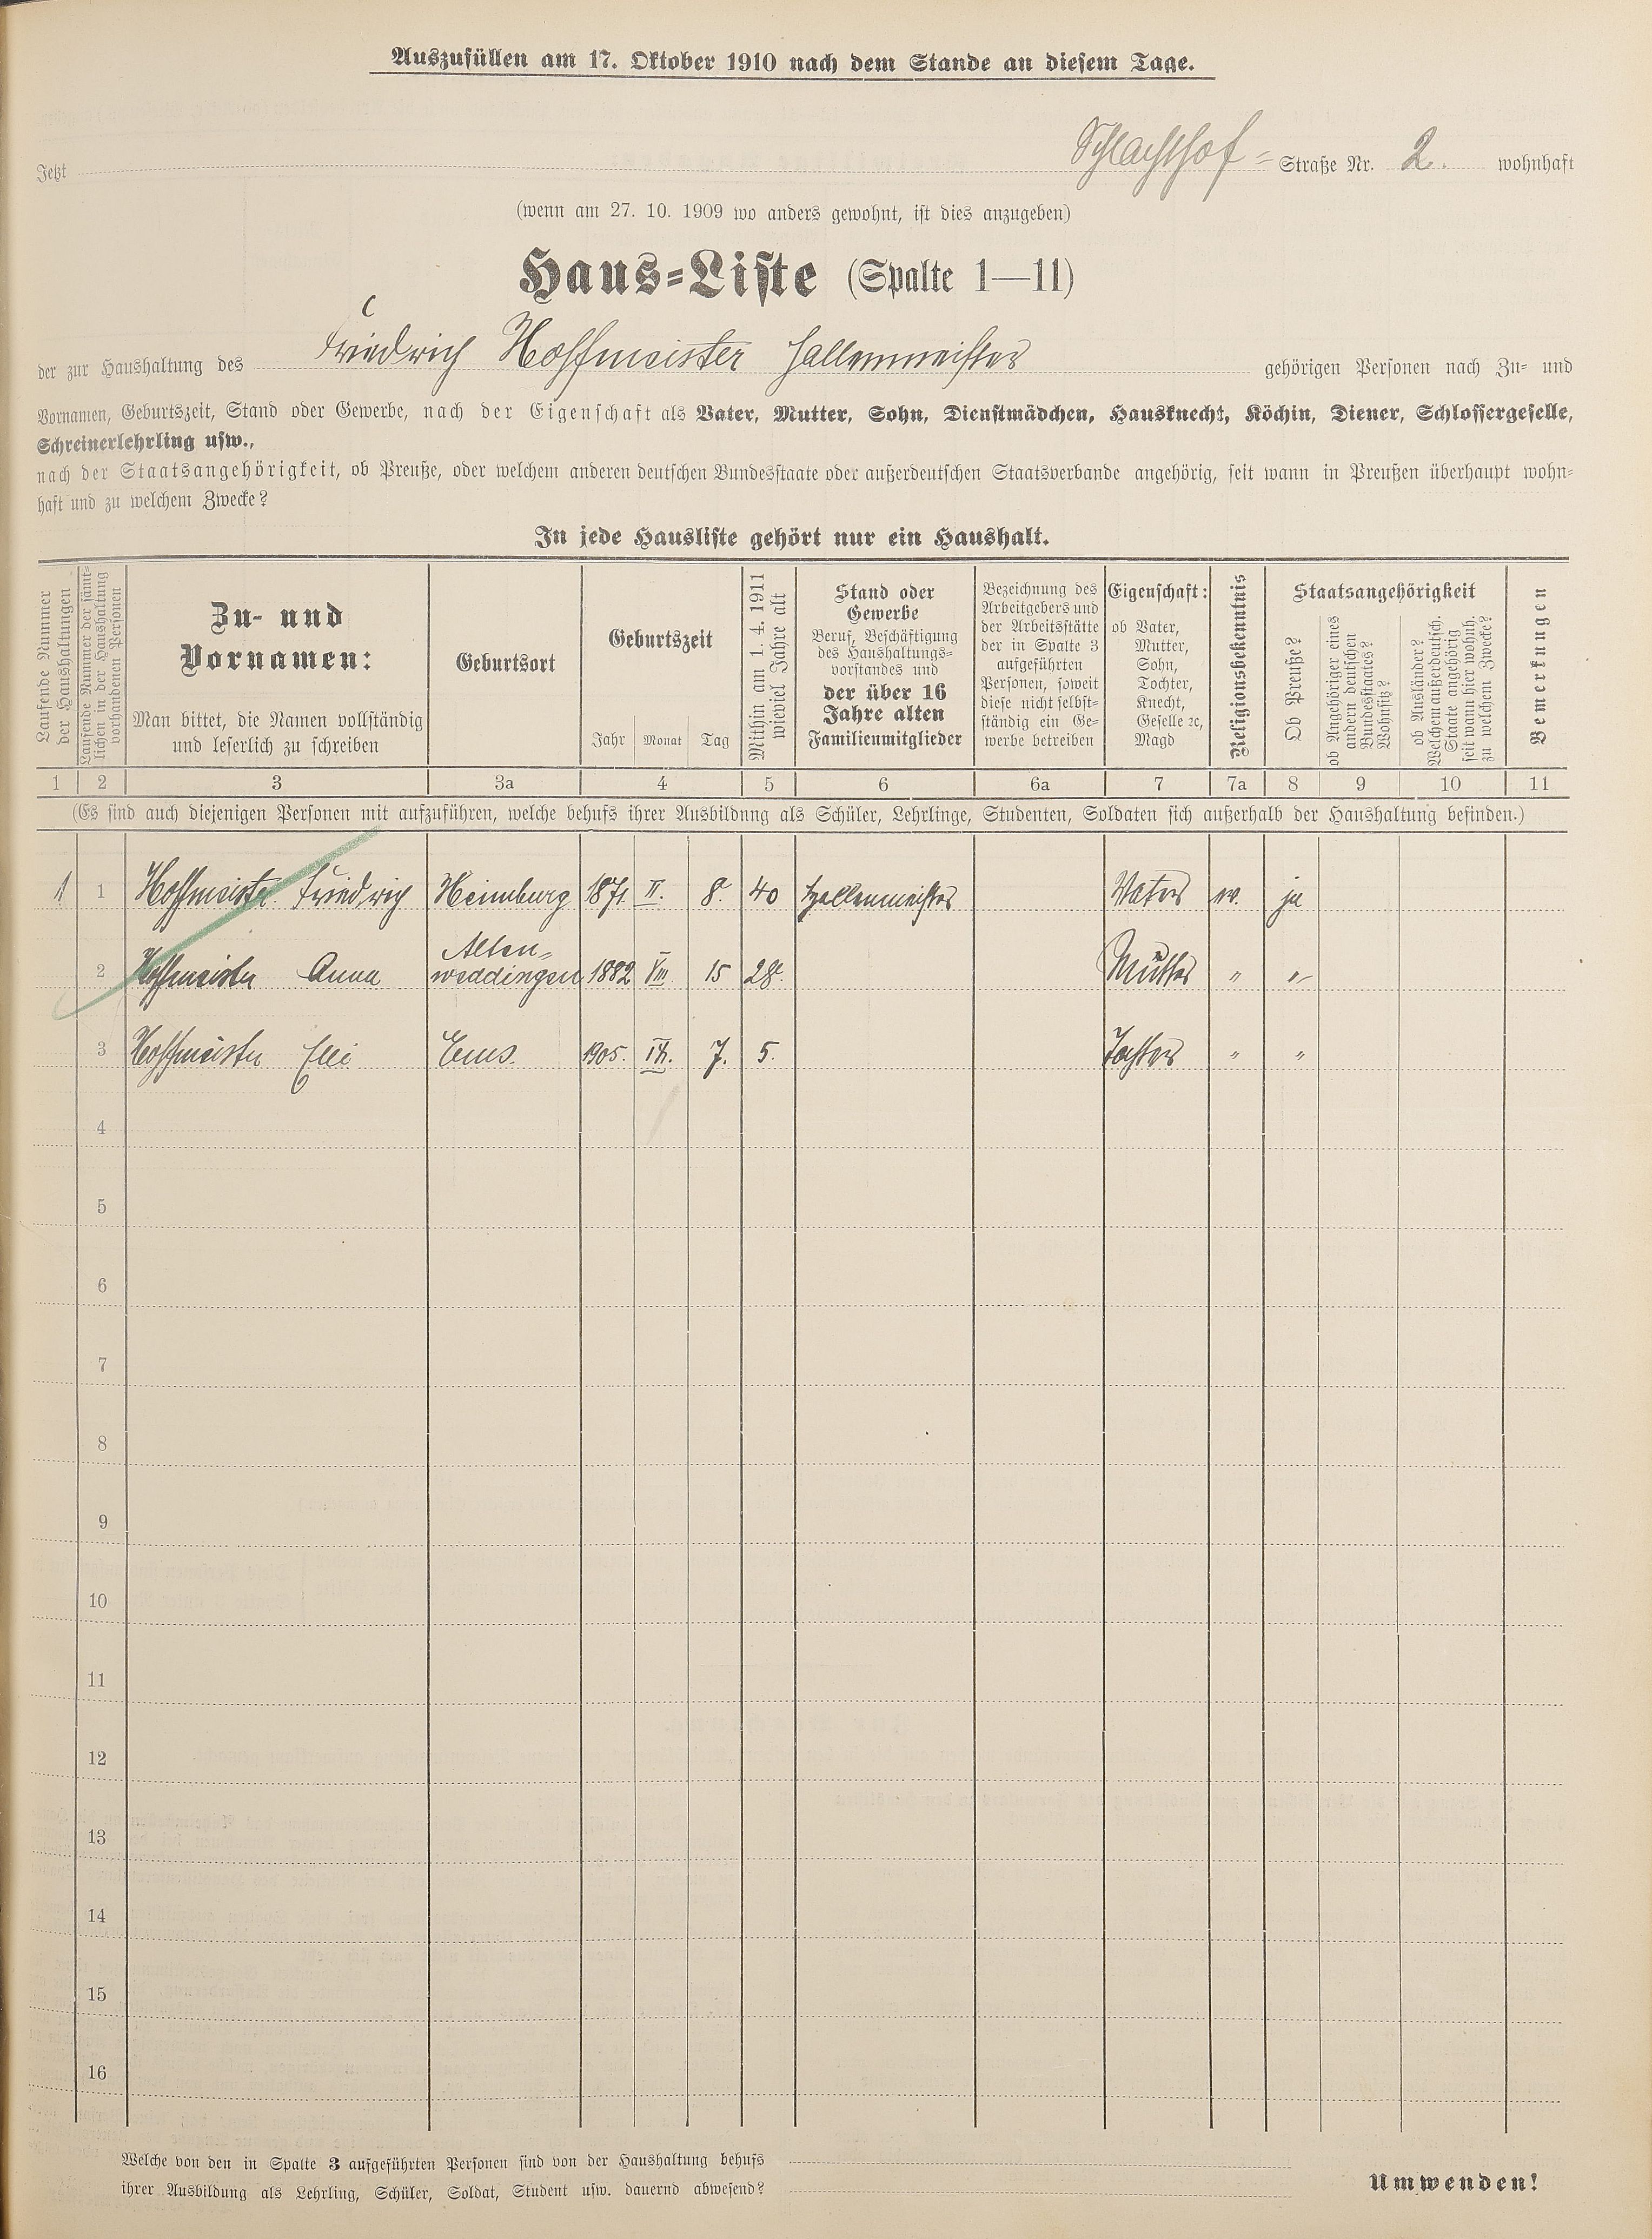 Auszufüllen am 17. Oktober 1910 nach dem Stande an diesem Tage.
Jetzt Schlachthof= Straße Nr. 2. wohnhaft
(wenn am 27. 10. 1909 wo anders gewohnt, ist dies anzugeben)
Haus=Liste (Spalte 1—11)
der zur Haushaltung des Friedrich Hoffmeister Hallenmeister gehörigen Personen nach Zu= und
Vornamen, Geburtszeit, Stand oder Gewerbe, nach der Eigenschaft als Vater, Mutter, Sohn, Dienstmädchen, Hausknecht, Köchin, Diener, Schlossergeselle,
Schreinerlehrling usw.,
nach der Staatsangehörigkeit, ob Preuße, oder welchem anderen deutschen Bundesstaate oder außerdeutschen Staatsverbande angehörig, seit wann in Preußen überhaupt wohn=
haft und zu welchem Zwecke?
In jede Hausliste gehört nur ein Haushalt.
Laufende Nummer
der Haushaltungen
Laufende Nummer der sämt=
lichen in der Haushaltung
vorhandenen Personen
Zu- und
Vornamen:
Man bittet, die Namen vollständig
und leserlich zu schreiben
Geburtsort
Geburtszeit
Jahr Monat Tag
Mithin am 1. 4. 1911
wieviel Jahre alt
Stand oder
Gewerbe
Beruf, Beschäftigung
des Haushaltungs=
vorstandes und
der über 16
Jahre alten
Familienmitglieder
Bezeichnung des
Arbeitgebers und
der Arbeitsstätte
der in Spalte 3
aufgeführten
Personen, soweit
diese nicht selbst=
ständig ein Ge=
werbe betreiben
Eigenschaft:
ob Vater,
Mutter,
Sohn,
Tochter,
Knecht,
Geselle ꝛc,
Magd
Religionsbekenntnis
Staatsangehörigkeit
Ob Preuße?
ob Angehöriger eines
andern deutschen
Bundesstaates?
Wohnsitz?
ob Ausländer?
Welchem außerdeutsch.
Staate angehörig
seit wann hier wohnh.
zu welchem Zwecke?
Bemerkungen
1 2 3 3a 4 5 6 6a 7 7a 8 9 10 11
(Es sind auch diejenigen Personen mit aufzuführen, welche behufs ihrer Ausbildung als Schüler, Lehrlinge, Studenten, Soldaten sich außerhalb der Haushaltung befinden.)
1 1 Hoffmeister Friedrich Heimburg 1871 II. 8. 40 Hallenmeister Vater ev. ja
2 Hoffmeister Anna Alten=
weddingen 1882 VIII. 15 28. Mutter " "
3 Hoffmeister Elli Ems. 1905. IX. 7. 5. Tochter " "
4
5
6
7
8
9
10
11
12
13
14
15
16
Welche von den in Spalte 3 aufgeführten Personen sind von der Haushaltung behufs
ihrer Ausbildung als Lehrling, Schüler, Soldat, Student usw. dauernd abwesend?
Umwenden!